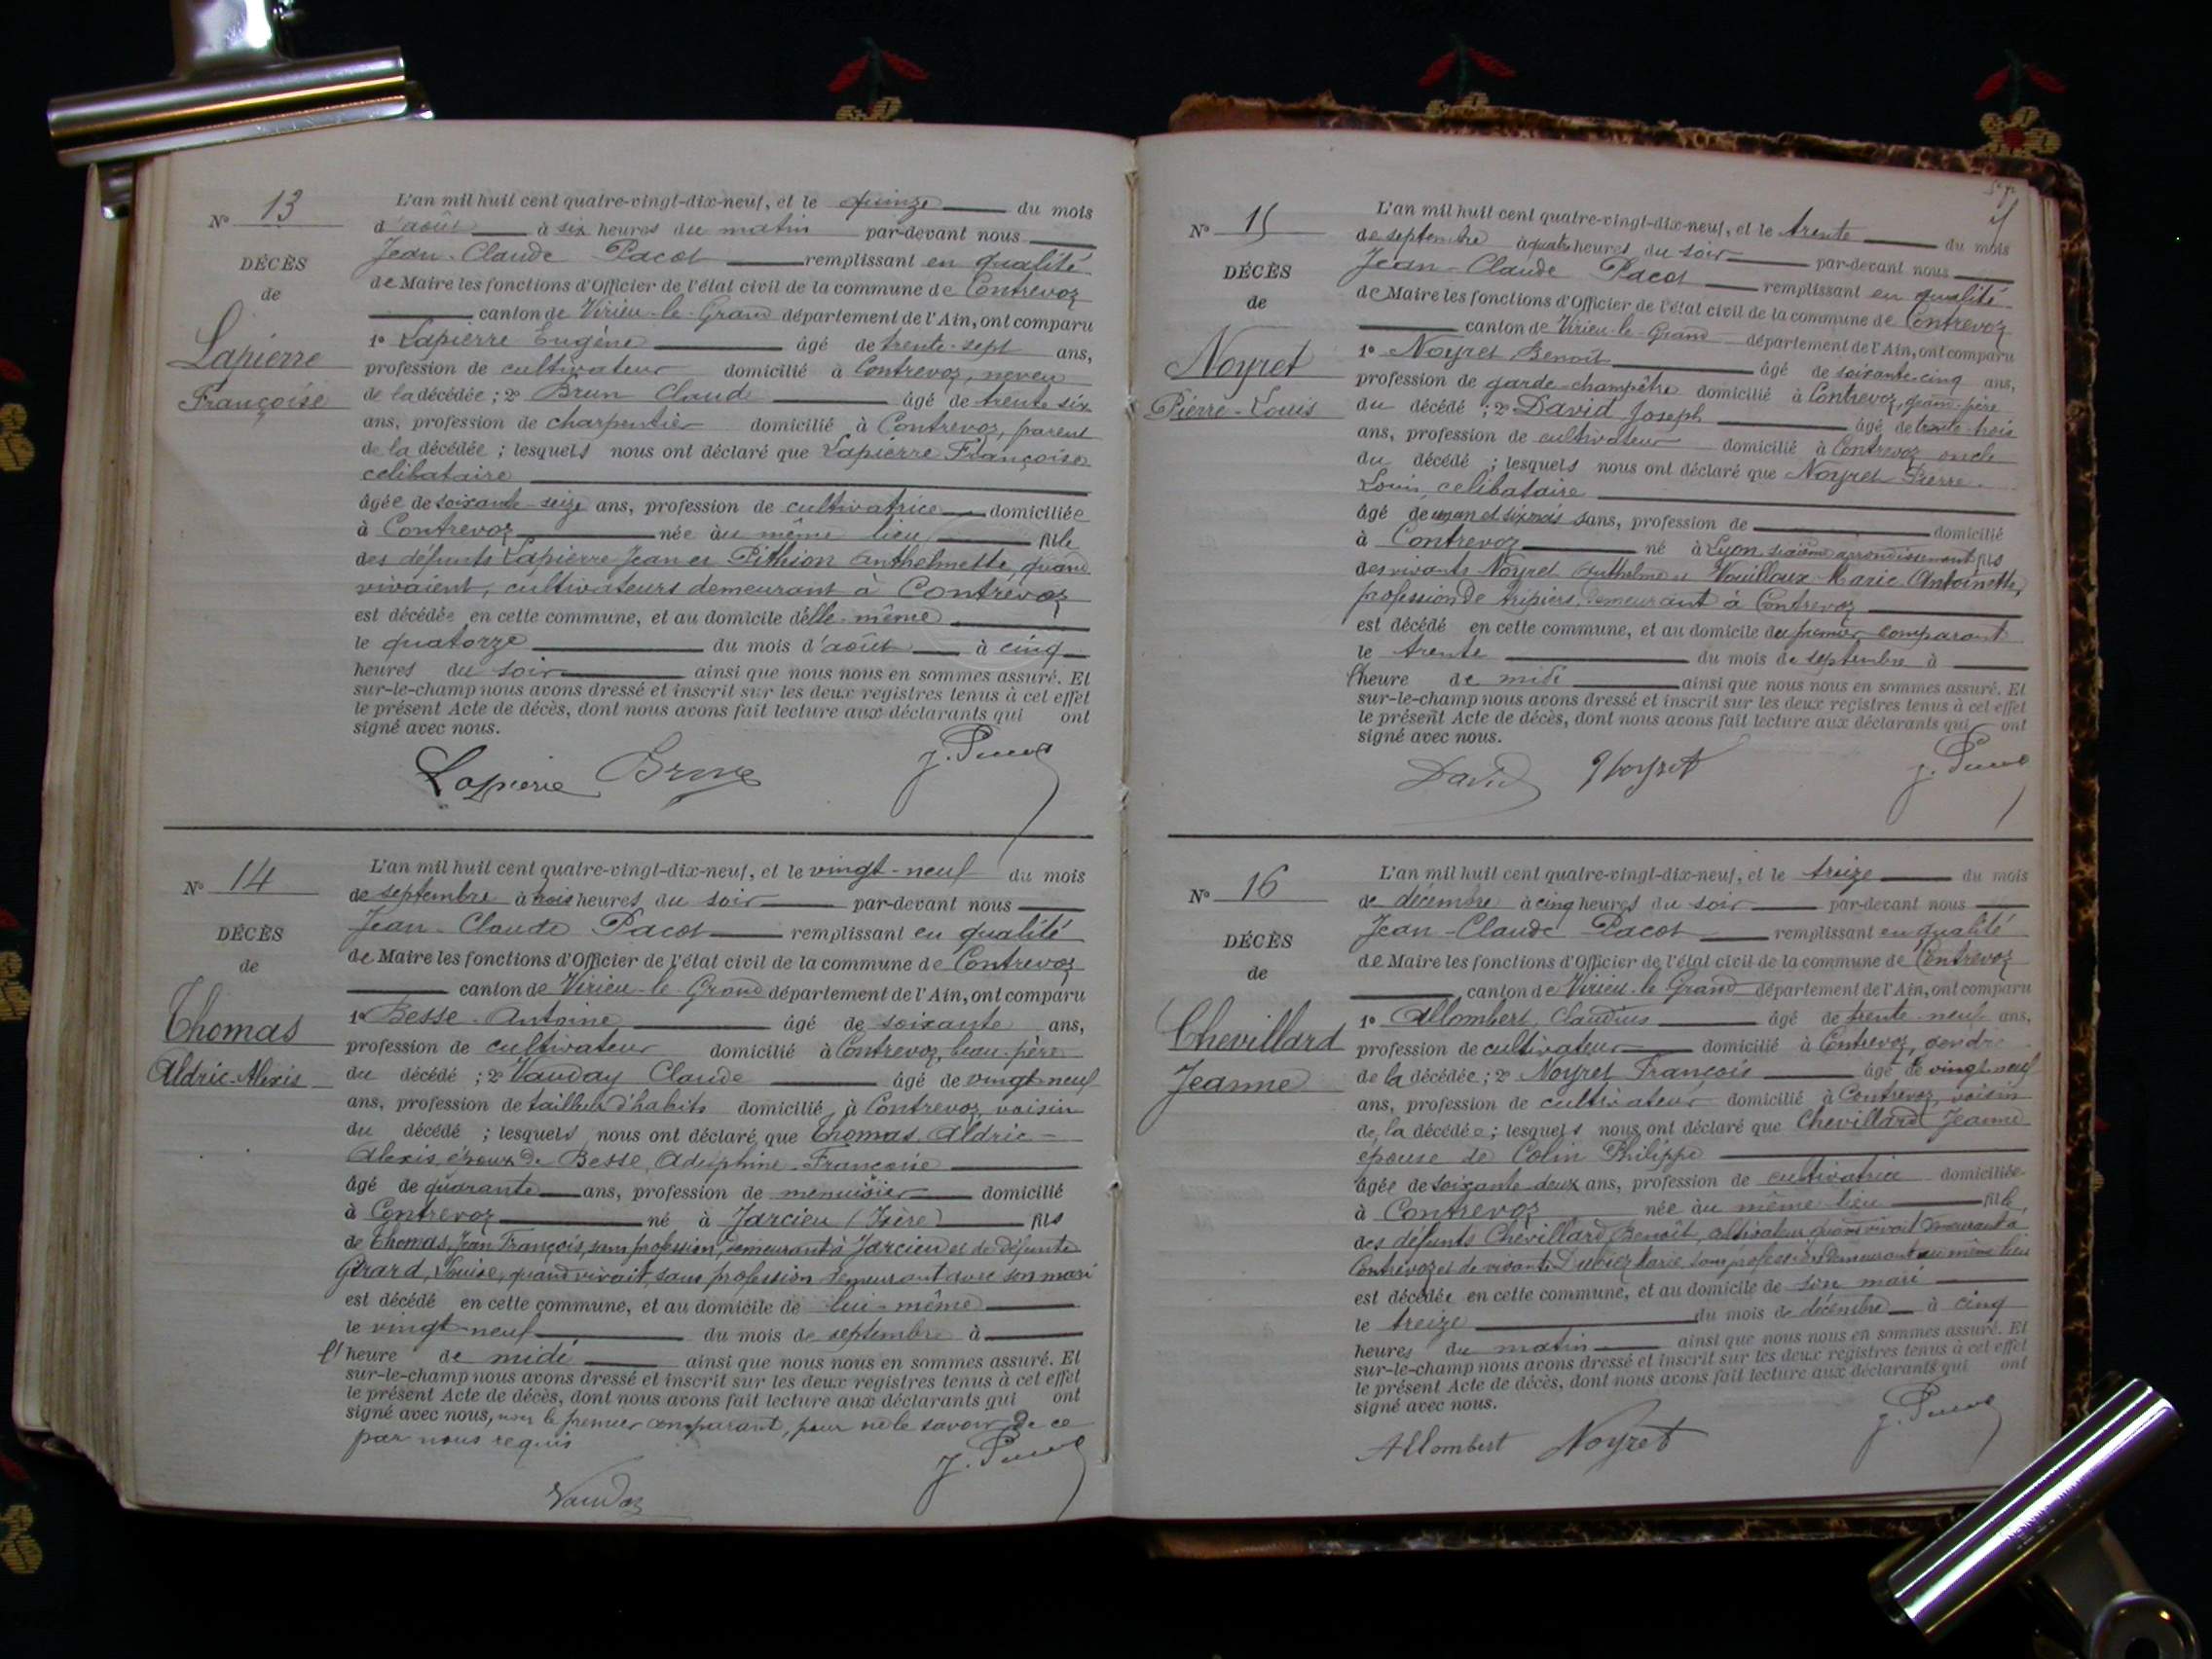 N° 13
DÉCÈS
de
Lapierre
Françoise
L'an mil huit cent quatre-vingt-dix-neuf, et le quinze du mois
d'août à six heures du matin par-devant nous
Jean-Claude Pacot remplissant en qualité
de Maire les fonctions d'Officier de l'état civil de la commune de Contrevoz
canton de Virieu-le-Grand département de l'Ain, ont comparu
1° Lapierre Eugène âgé de trente-sept ans,
profession de cultivateur domicilié à Contrevoz, neveu
de la décédée ; 2° Brun Claude âgé de trente six
ans, profession de charpentier domicilié à Contrevoz, parent
de la décédée ; lesquels nous ont déclaré que Lapierre Françoise
celibataire
âgée de soixante-seize ans, profession de cultivatrice domiciliée
à Contrevoz née au même lieu fille
des défunts Lapierre Jean et Pithion Anthelmette, quand
vivaient, cultivateurs demeurant à Contrevoz
est décédée en cette commune, et au domicile d'elle-même
le quatorze du mois d'août à cinq
heures du soir ainsi que nous nous en sommes assuré. Et
sur-le-champ nous avons dressé et inscrit sur les deux registres tenus à cet effet
le présent Acte de décès, dont nous avons fait lecture aux déclarants qui ont
signé avec nous.
Lapierre Brun J. Pacot
N° 14
DÉCÈS
de
Thomas
Aldric-Alexis
L'an mil huit cent quatre-vingt-dix-neuf, et le vingt-neuf du mois
de septembre à trois heures du soir par-devant nous
Jean-Claude Pacot remplissant en qualité
de Maire les fonctions d'Officier de l'état civil de la commune de Contrevoz
canton de Virieu-le-Grand département de l'Ain, ont comparu
1° Besse Antoine âgé de soixante ans,
profession de cultivateur domicilié à Contrevoz, beau-père
du décédé ; 2° Vauday Claude âgé de vingt-neuf
ans, profession de tailleur d'habits domicilié à Contrevoz, voisin
du décédé ; lesquels nous ont déclaré que Thomas, Aldric-
Alexis, époux de Besse, Adelphine-Françoise
âgé de quarante ans, profession de menuisier domicilié
à Contrevoz né à Jarcieu (Isère) fils
de Thomas, Jean François, sans profession, demeurant à Jarcieu et de défunte
Girard, Louise, quand vivait, sans profession demeurant avec son mari
est décédé en cette commune, et au domicile de lui-même
le vingt-neuf du mois de septembre à
l'heure de midi ainsi que nous nous en sommes assuré. Et
sur-le-champ nous avons dressé et inscrit sur les deux registres tenus à cet effet
le présent Acte de décès, dont nous avons fait lecture aux déclarants qui ont
signé avec nous, non le premier comparant, pour ne le savoir de ce
par nous requis
Vauday J. Pacot
N° 15
DÉCÈS
de
Noyret
Pierre-Louis
L'an mil huit cent quatre-vingt-dix-neuf, et le trente du mois
de septembre à quatre heures du soir par-devant nous
Jean-Claude Pacot remplissant en qualité
de Maire les fonctions d'Officier de l'état civil de la commune de Contrevoz
canton de Virieu-le-Grand département de l'Ain, ont comparu
1° Noyret Benoît âgé de soixante-cinq ans,
profession de garde-champêtre domicilié à Contrevoz, grand-père
du décédé ; 2° David Joseph âgé de trente-trois
ans, profession de cultivateur domicilié à Contrevoz oncle
du décédé ; lesquels nous ont déclaré que Noyret Pierre-
Louis, celibataire
âgé de un an et six mois sans, profession de domicilié
à Contrevoz né à Lyon, sixième arrondissement fils
des vivants Noyret Anthelme et Vouilloux Marie Antoinette,
profession de tripiers, demeurant à Contrevoz
est décédé en cette commune, et au domicile du premier comparant
le trente du mois de septembre à
l'heure de midi ainsi que nous nous en sommes assuré. Et
sur-le-champ nous avons dressé et inscrit sur les deux registres tenus à cet effet
le présent Acte de décès, dont nous avons fait lecture aux déclarants qui ont
signé avec nous.
David Noyret J. Pacot
N° 16
DÉCÈS
de
Chevillard
Jeanne
L'an mil huit cent quatre-vingt-dix-neuf, et le treize du mois
de décembre à cinq heures du soir par-devant nous
Jean-Claude Pacot remplissant en qualité
de Maire les fonctions d'Officier de l'état civil de la commune de Contrevoz
canton de Virieu-le-Grand département de l'Ain, ont comparu
1° Allombert, Claudius âgé de trente-neuf ans,
profession de cultivateur domicilié à Contrevoz, gendre
de la décédée ; 2° Noyret François âgé de vingt-neuf
ans, profession de cultivateur domicilié à Contrevoz, voisin
de la décédée ; lesquels nous ont déclaré que Chevillard Jeanne
epouse de Colin Philippe
âgée de soixante-deux ans, profession de cultivatrice domiciliée
à Contrevoz née au même lieu fille
des défunts Chevillard, Benoît, cultivateur quand vivait demeurant à
Contrevoz et de vivante Dubiez Marie, sans profession demeurant au même lieu
est décédée en cette commune, et au domicile de son mari
le treize du mois de décembre à cinq
heures du matin ainsi que nous nous en sommes assuré. Et
sur-le-champ nous avons dressé et inscrit sur les deux registres tenus à cet effet
le présent Acte de décès, dont nous avons fait lecture aux déclarants qui ont
signé avec nous.
Allombert Noyret J. Pacot